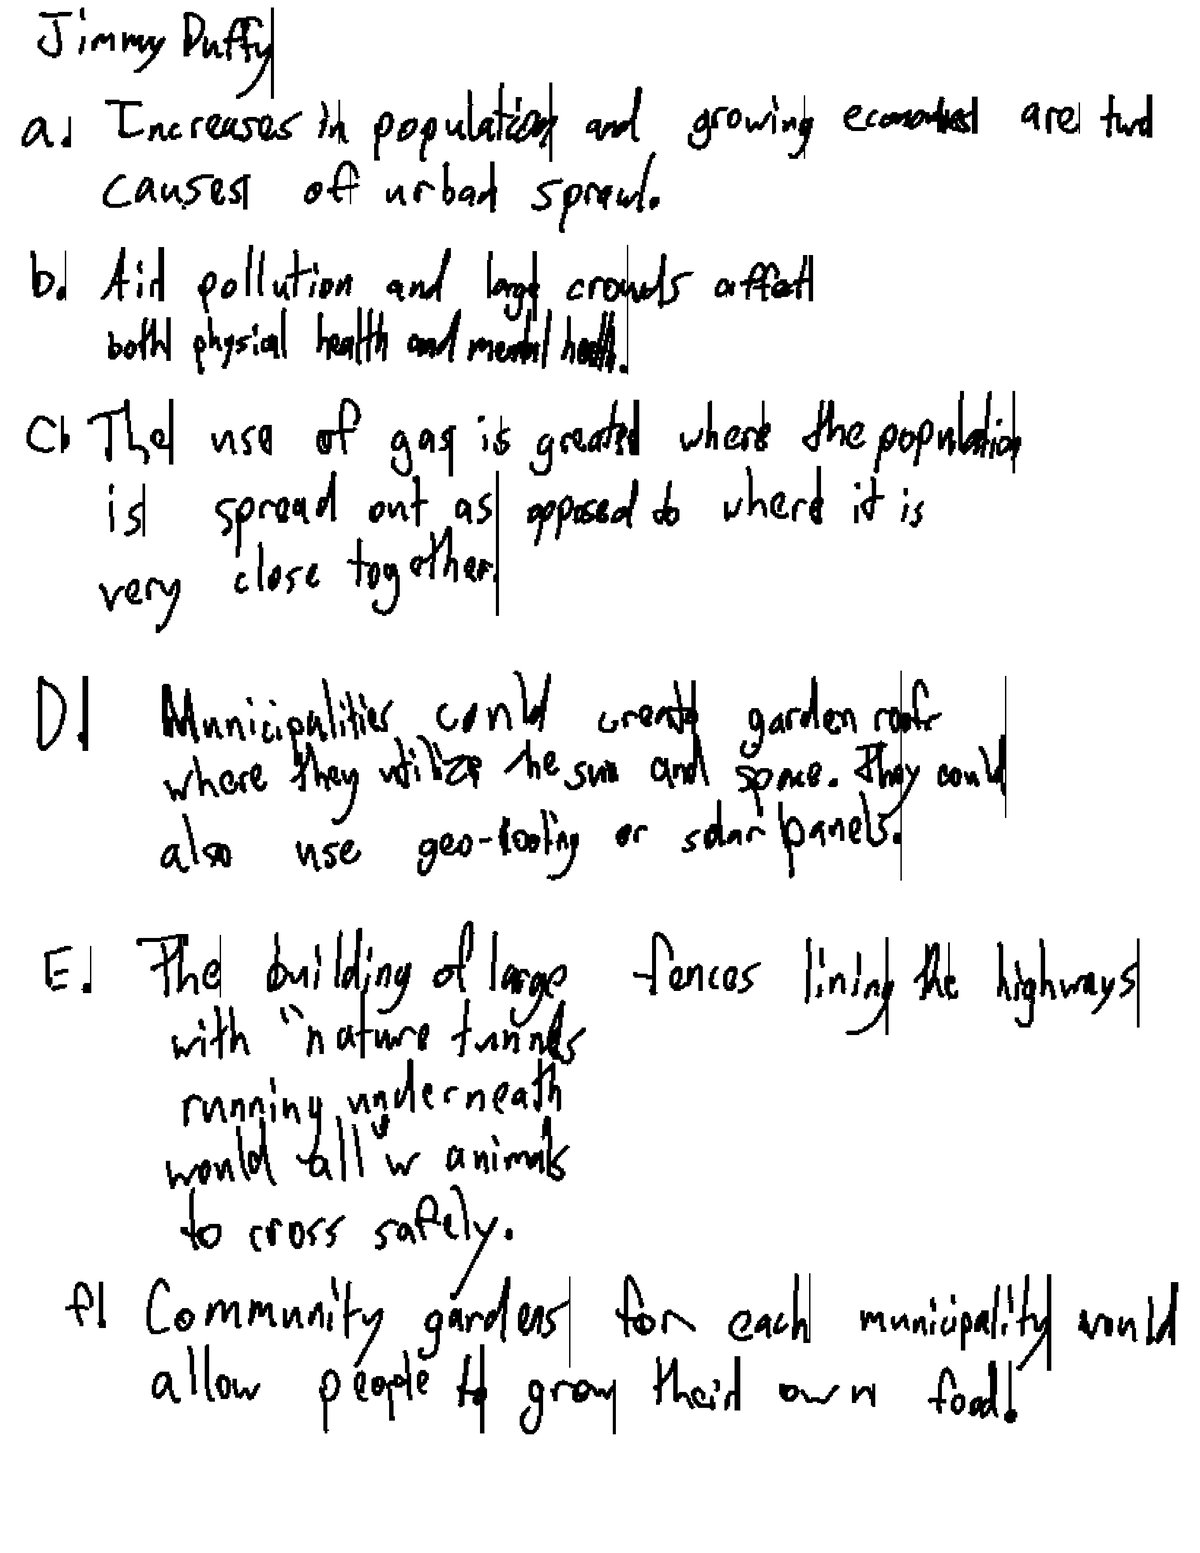 Jimmy Duffy
a. Increases in population and growing economies are two
causes of urban sprawl.
b. Air pollution and large crowds affect
both physical health and mental health.
C. The use of gas is greater where the population
is spread out as opposed to where it is
very close together.
D. Municipalities could create garden roofs
where they utilize the sun and space. They could
also use geo-cooling or solar panels.
E. The building of large fences lining the highways
with "nature tunnels
running underneath
would allow animals
to cross safely.
f. Community gardens for each municipality would
allow people to grow their own food.